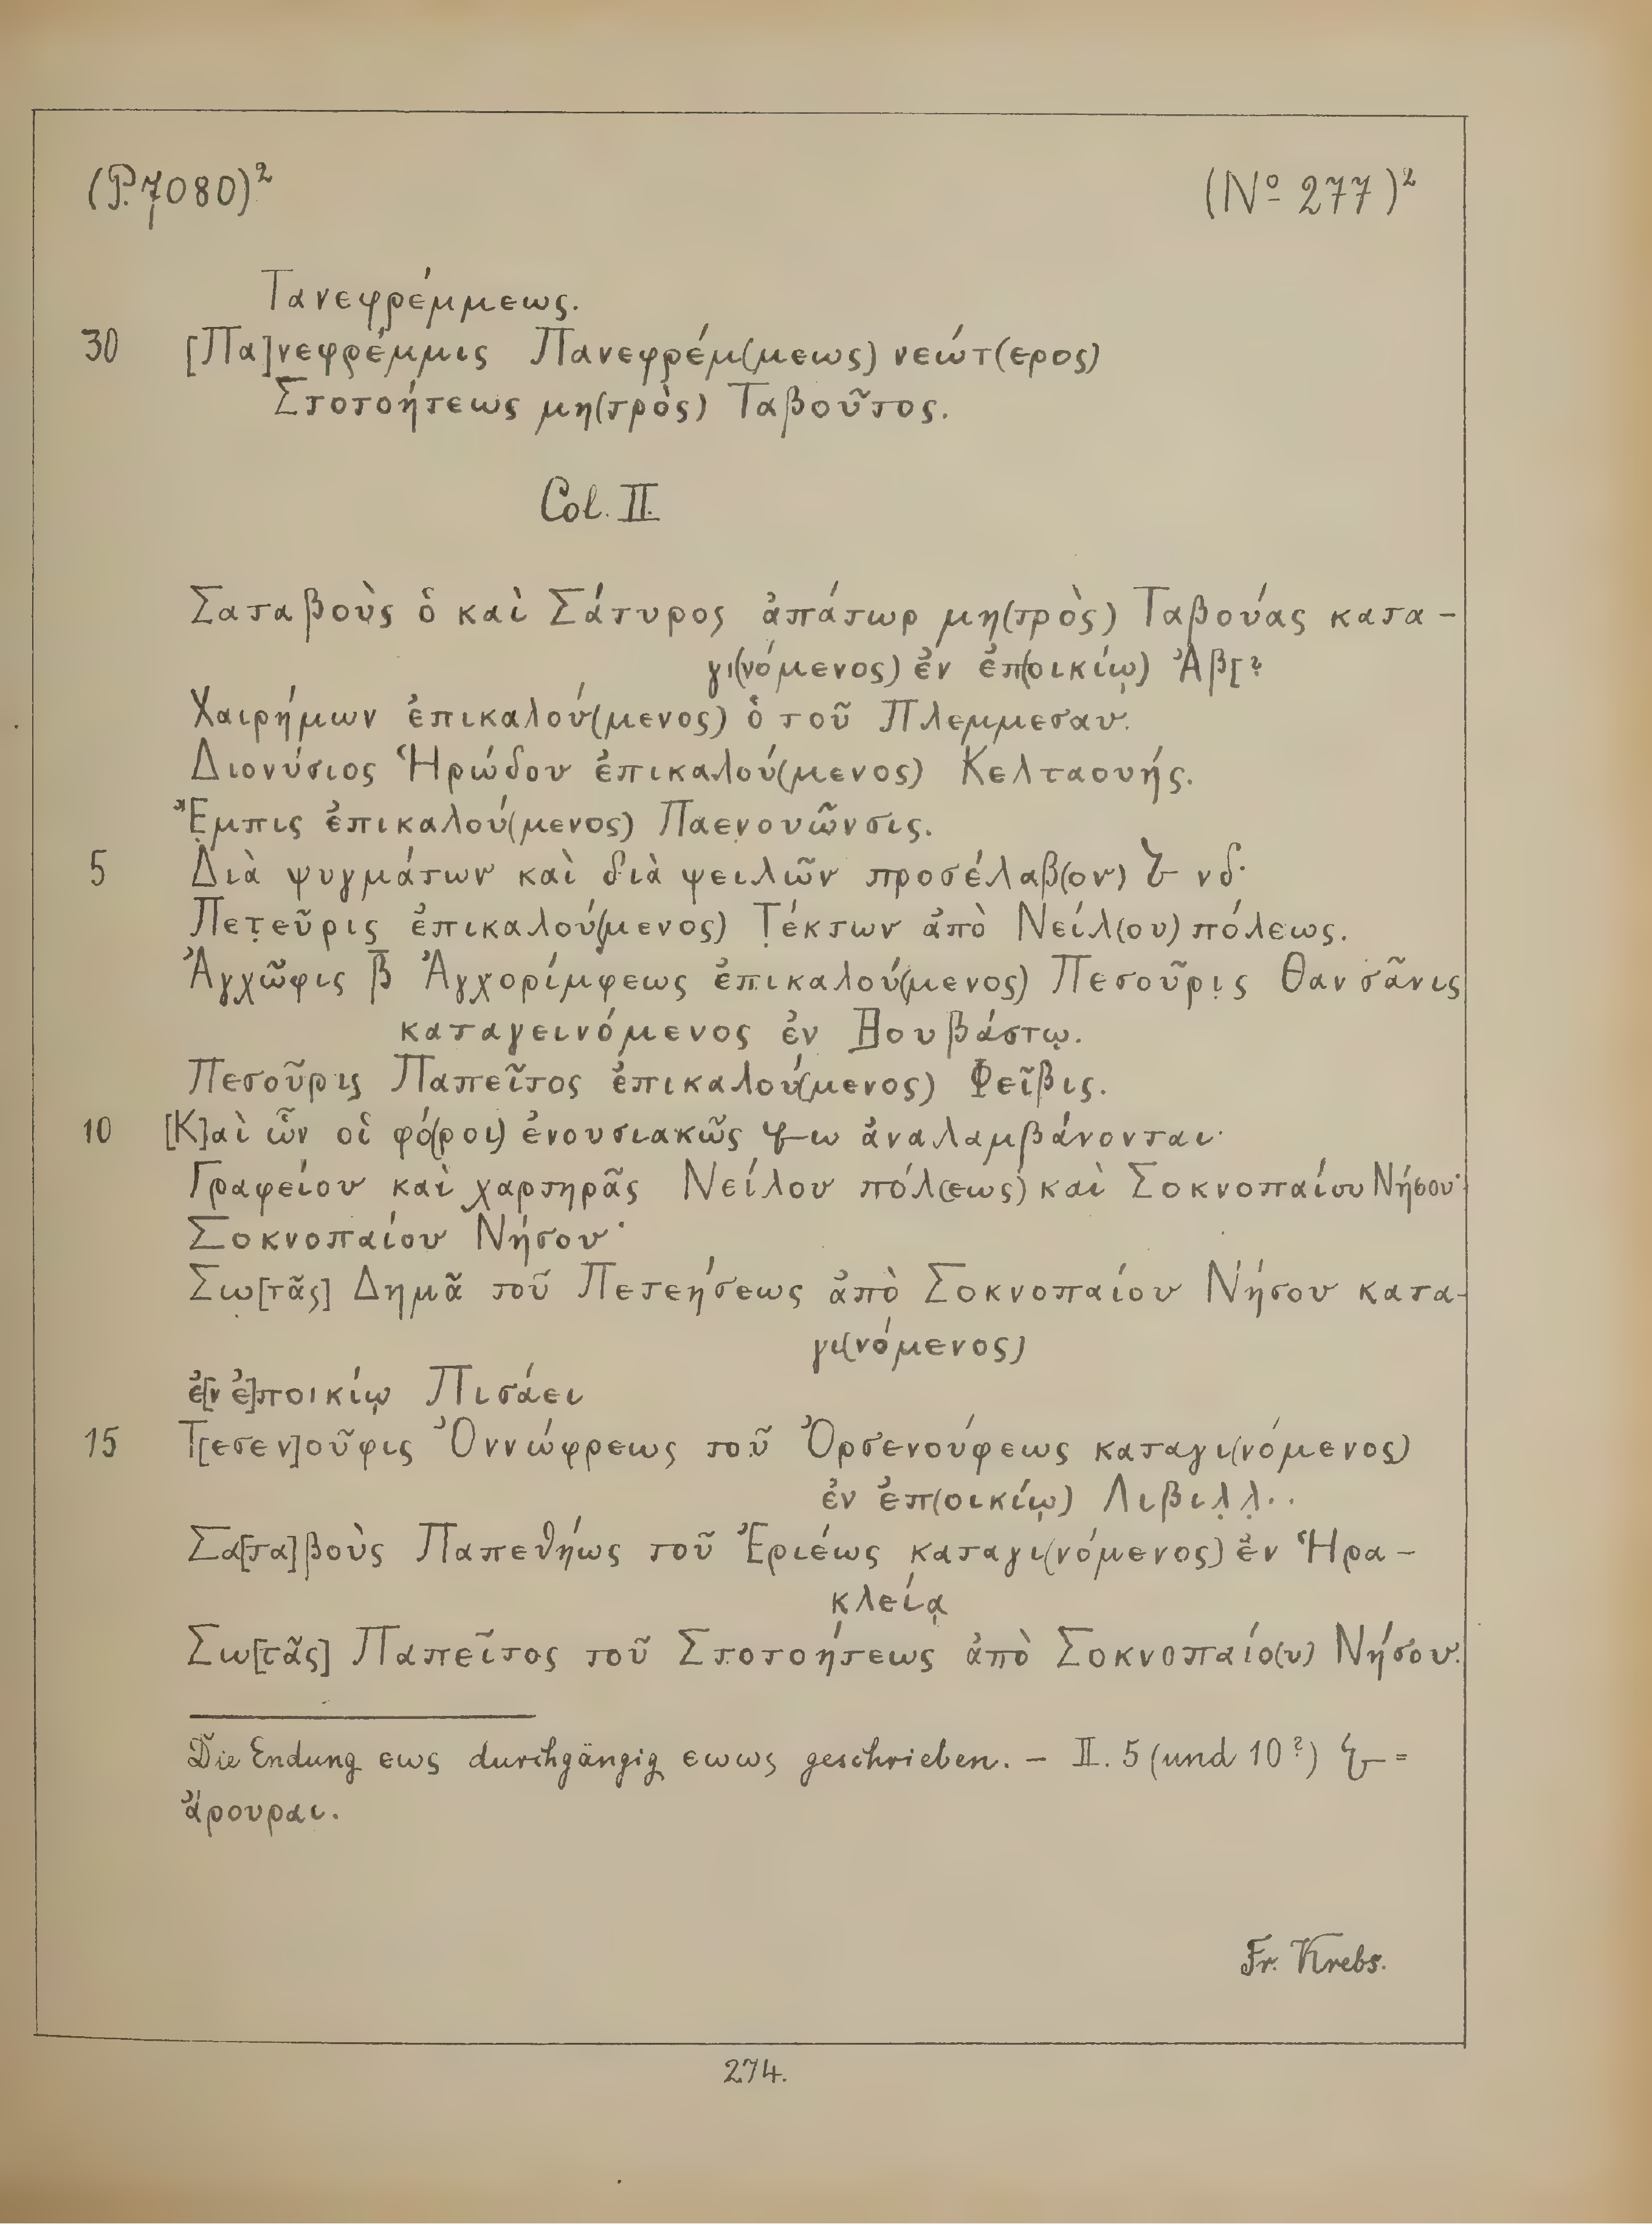 (P. 7080)² (Nº 277)²
Τανεφρέμμεως.
30 [Πα]νεφρέμμις Πανεφρέμ(μεως) νεώτ(ερος)
Στοτοήτεως μη(τρὸς) Ταβοῦτος.
Col. II.
Σαταβοὺς ὁ καὶ Σάτυρος ἀπάτωρ μη(τρὸς) Ταβούας κατα-
γι(νόμενος) ἐν ἐπ(οικίῳ) Ἀβ[?
Χαιρήμων ἐπικαλού(μενος) ὁ τοῦ Πλεμμεσαυ.
Διονύσιος Ἡρώδου ἐπικαλού(μενος) Κελταουής.
Ἔ̣μπις ἐπικαλού(μενος) Παενουῶνσις.
5 Διὰ ψυγμάτων καὶ διὰ ψειλῶν προσέλαβ(ον) νδ·
Πετ̣εῦρις ἐπικαλού(μενος) Τ̣έκτων ἀπὸ Νείλ(ου) πόλεως.
Ἀγχῶφις β̅ Ἀγχορίμφεως ἐπικαλού(μενος) Πεσοῦρι̣ς Θανσᾶνις
καταγεινόμενος ἐν Βουβάστῳ.
Πεσοῦρις Παπεῖτος ἐπικαλού(μενος) Φεῖβις.
10 [Κ]αὶ ὧν οἱ φό(ροι) ἐνουσιακῶς ω ἀναλαμβάνονται·
Γραφείου καὶ χαρτηρᾶς Νείλου πόλ(εως) καὶ Σοκνοπαίου Νήσου·
Σοκνοπαίου Νήσου·
Σω̣[τᾶς] Δημᾶ τοῦ Πετεήσεως ἀπὸ Σοκνοπαίου Νήσου κατα-
γι(νόμενος)
ἐ[ν ἐ]ποικίῳ Πισάει
15 Τ[εσεν]οῦφις Ὀννώφρεως τοῦ Ὀρσενούφεως καταγι(νόμενος)
ἐν ἐπ(οικίῳ) Λιβιλ̣λ̣..
Σα[τα]βοὺς Παπεθήως τοῦ Ἐριέως καταγι(νόμενος) ἐν Ἡρα-
κλείᾳ
Σω[τᾶς] Παπεῖτος τοῦ Στοτοήτεως ἀπὸ Σοκνοπαίο(υ) Νήσου.
Die Endung εως durchgängig εωως geschrieben. — II. 5 (und 10?) =
ἄρουραι.
Fr. Krebs.
274.